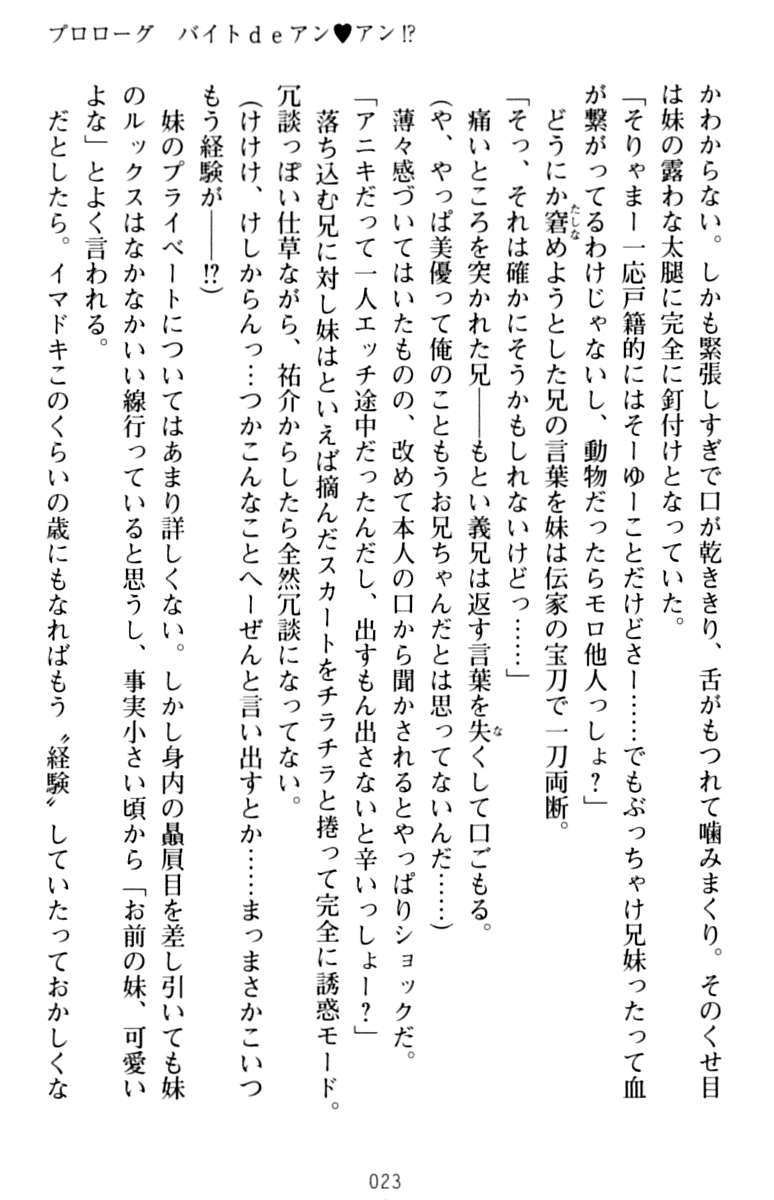 プロローグ　バイトｄｅアン♥アン!?
かわからない。しかも緊張しすぎで口が乾ききり、舌がもつれて噛みまくり。そのくせ目
は妹の露わな太腿に完全に釘付けとなっていた。
「そりゃまー一応戸籍的にはそーゆーことだけどさー……でもぶっちゃけ兄妹ったって血
が繋がってるわけじゃないし、動物だったらモロ他人っしょ？」
どうにか窘（たしな）めようとした兄の言葉を妹は伝家の宝刀で一刀両断。
「そっ、それは確かにそうかもしれないけどっ……」
痛いところを突かれた兄――もとい義兄は返す言葉を失（な）くして口ごもる。
（や、やっぱ美優って俺のこともうお兄ちゃんだとは思ってないんだ……）
薄々感づいてはいたものの、改めて本人の口から聞かされるとやっぱりショックだ。
「アニキだって一人エッチ途中だったんだし、出すもん出さないと辛いっしょー？」
落ち込む兄に対し妹はといえば摘んだスカートをチラチラと捲って完全に誘惑モード。
冗談っぽい仕草ながら、祐介からしたら全然冗談になってない。
（けけけ、けしからんっ…つかこんなことへーぜんと言い出すとか……まっまさかこいつ
もう経験が――!?）
妹のプライベートについてはあまり詳しくない。しかし身内の贔屓目を差し引いても妹
のルックスはなかなかいい線行っていると思うし、事実小さい頃から「お前の妹、可愛い
よな」とよく言われる。
だとしたら。イマドキこのくらいの歳にもなればもう〝経験〟していたっておかしくな
023